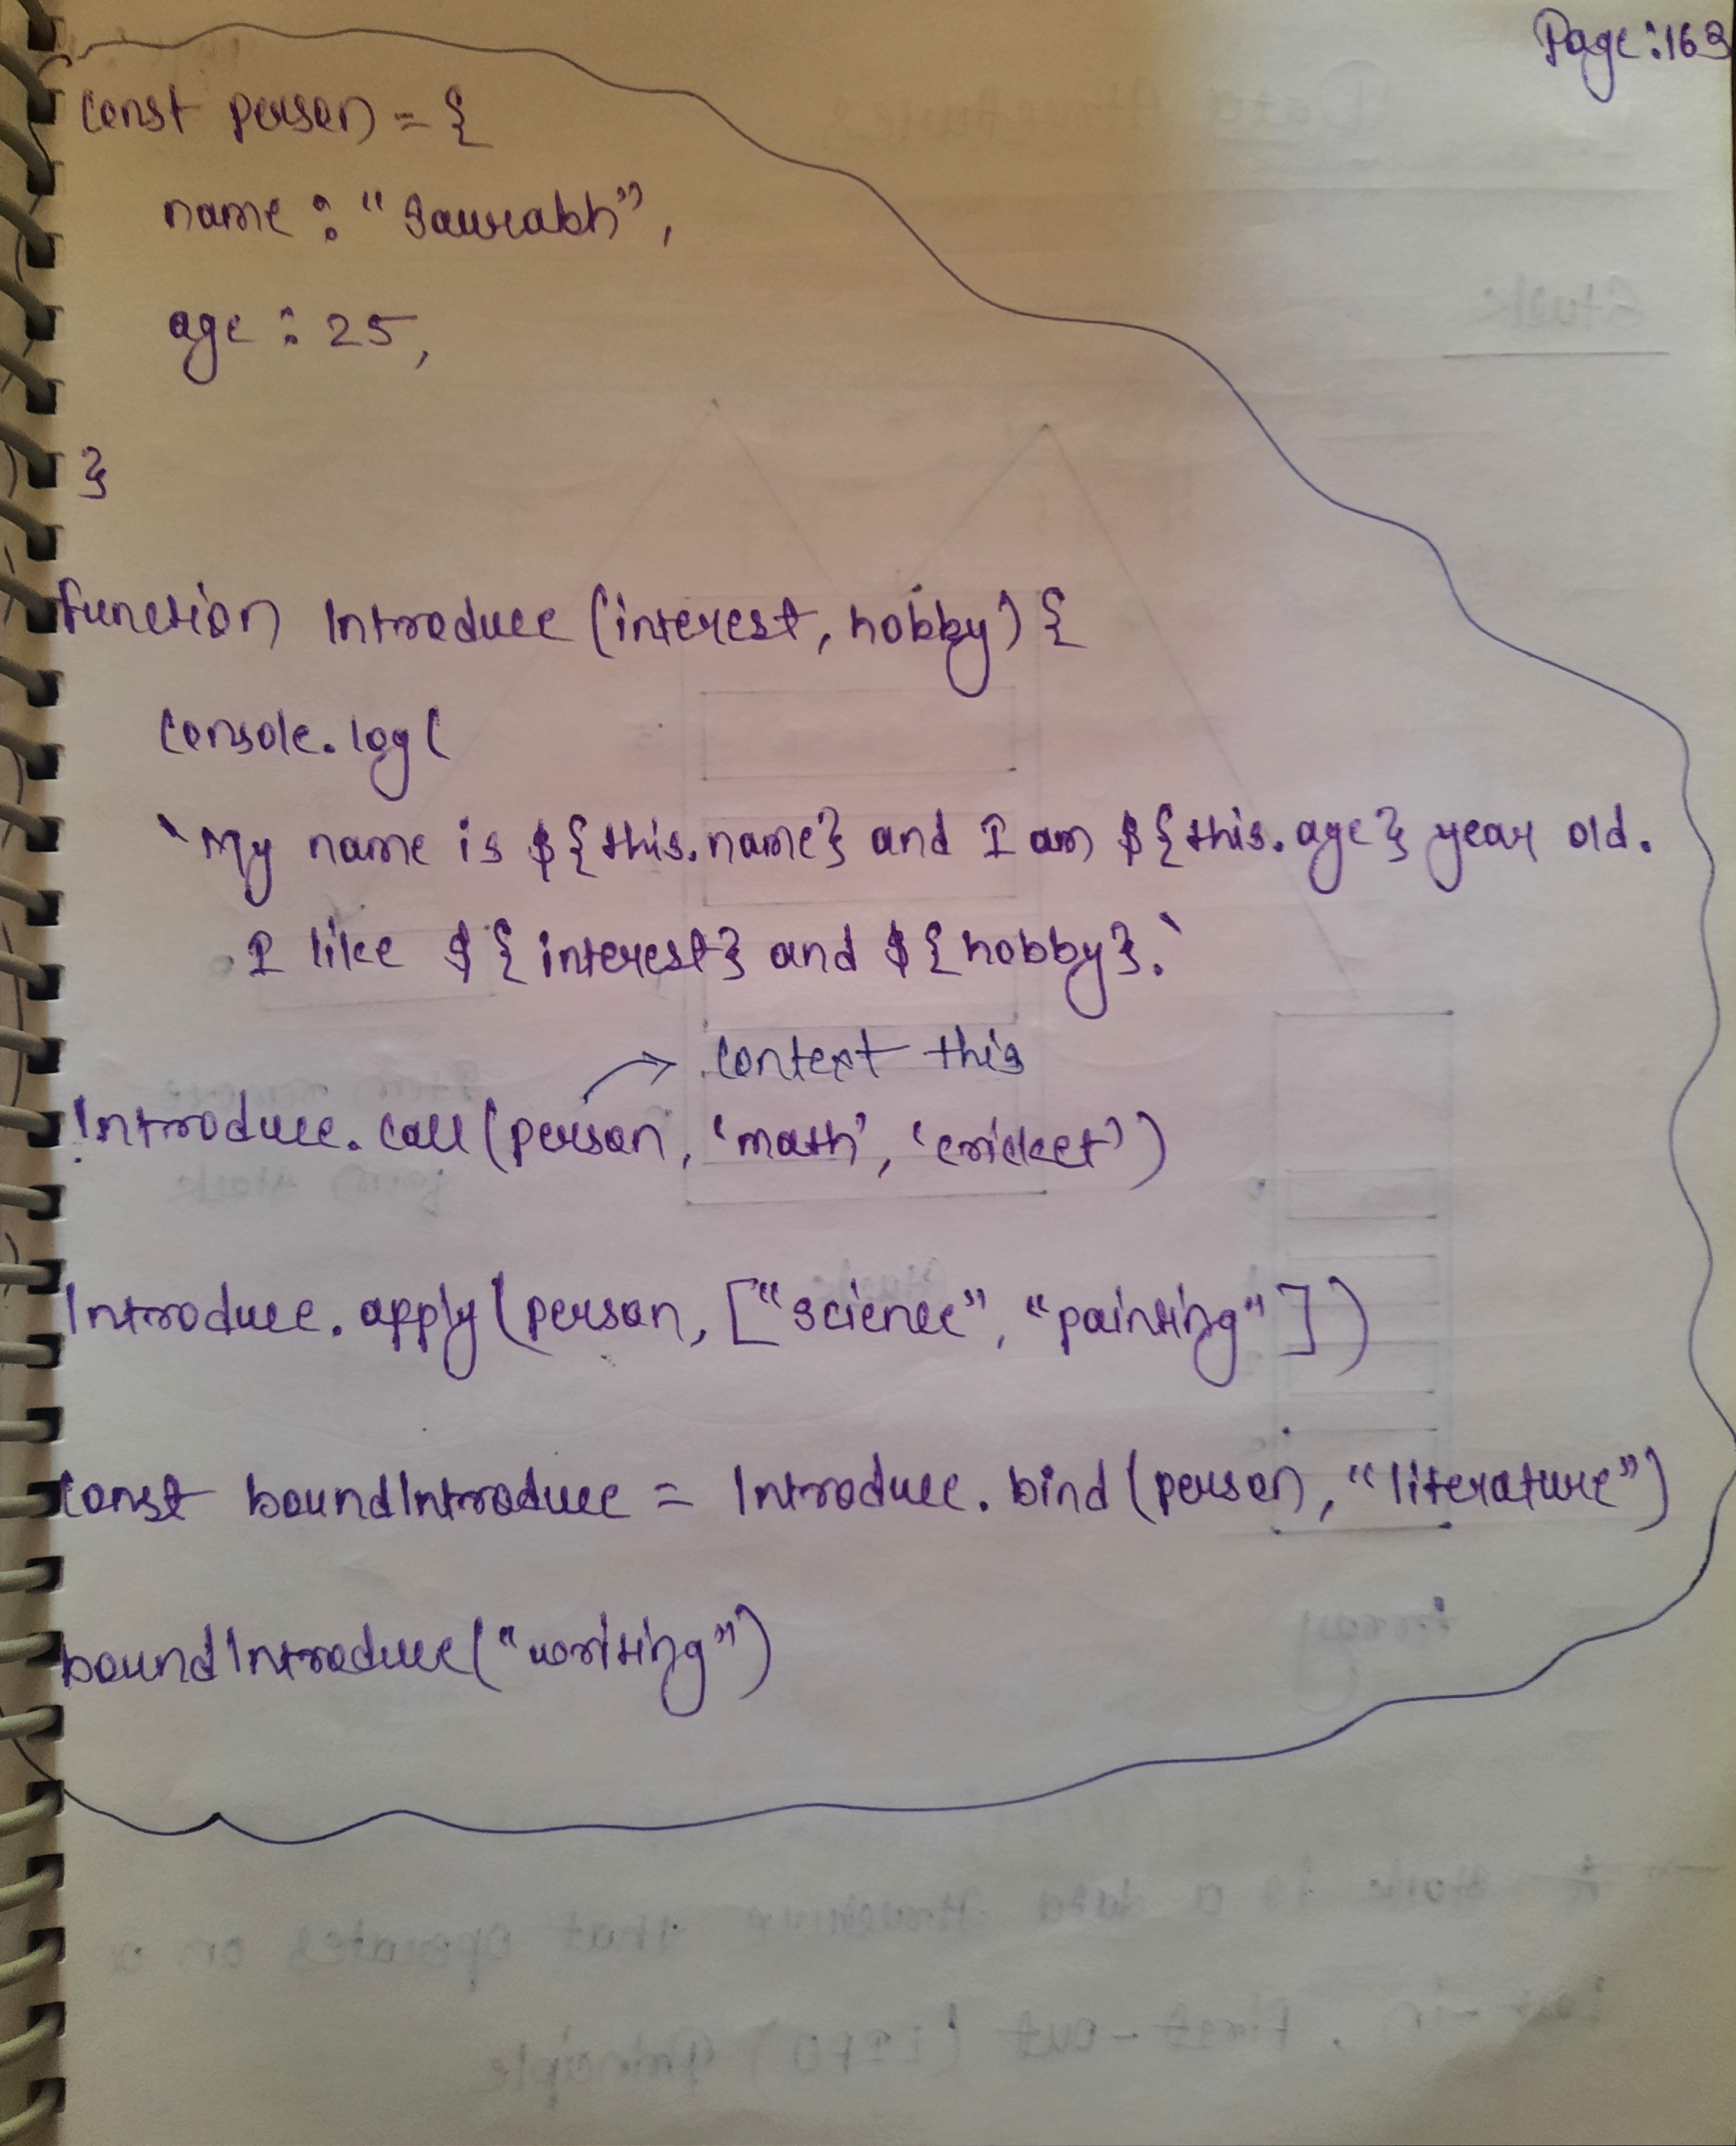 Page:163
const person = {
name : "Saurabh",
age : 25,
}
function Introduce (interest, hobby) {
console.log(
`My name is ${this.name} and I am ${this.age} year old.
I like ${interest} and ${hobby}.`
context this
Introduce.call(person, 'math', 'cricket')
Introduce.apply(person, ["science", "painting"])
const boundIntroduce = Introduce.bind(person, "literature")
boundIntroduce("writing")